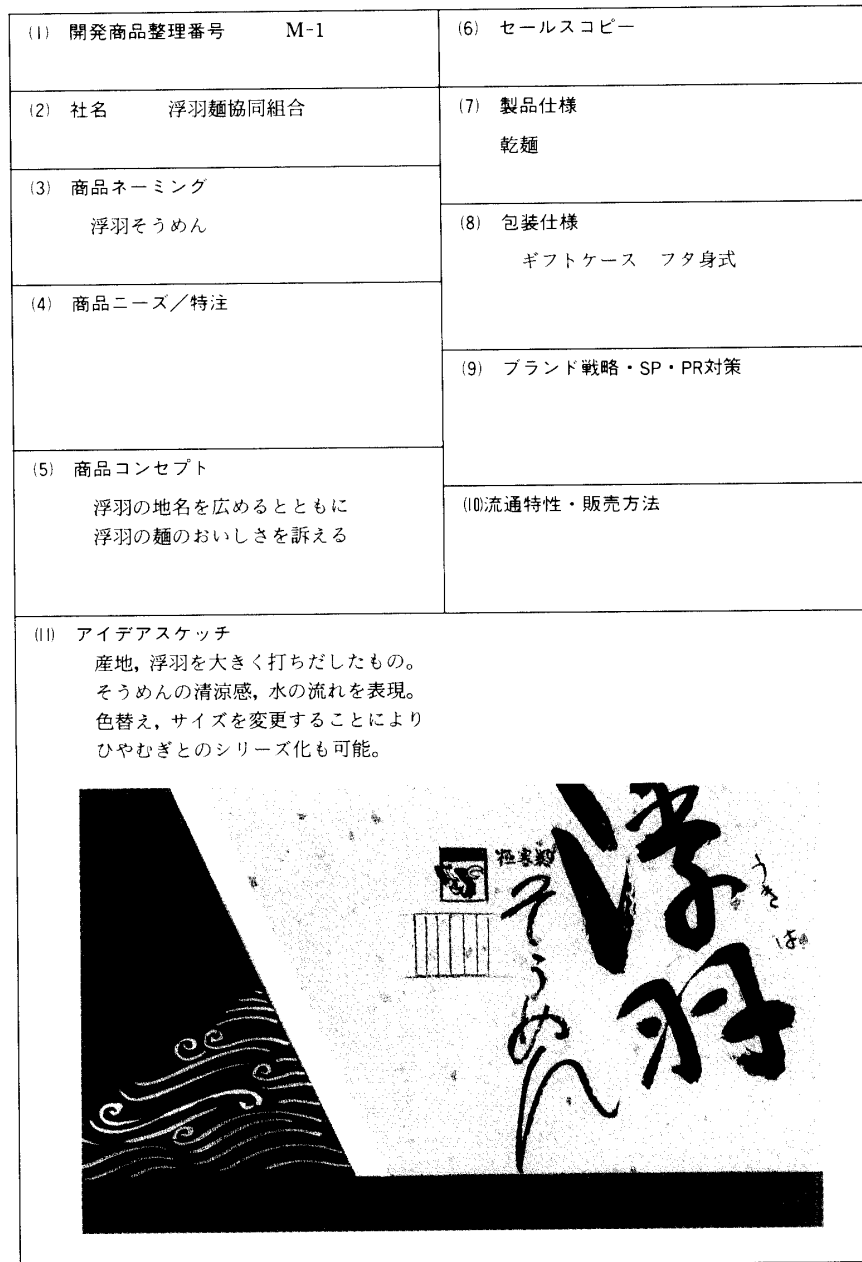 (1) 開発商品整理番号 M-1
(2) 社名 浮羽麺協同組合
(3) 商品ネーミング
浮羽そうめん
(4) 商品ニーズ／特注
(5) 商品コンセプト
浮羽の地名を広めるとともに
浮羽の麺のおいしさを訴える
(6) セールスコピー
(7) 製品仕様
乾麺
(8) 包装仕様
ギフトケース フタ身式
(9) ブランド戦略・SP・PR対策
(10)流通特性・販売方法
(11) アイデアスケッチ
産地，浮羽を大きく打ちだしたもの。
そうめんの清涼感，水の流れを表現。
色替え，サイズを変更することにより
ひやむぎとのシリーズ化も可能。
浮羽
うきは
そうめん